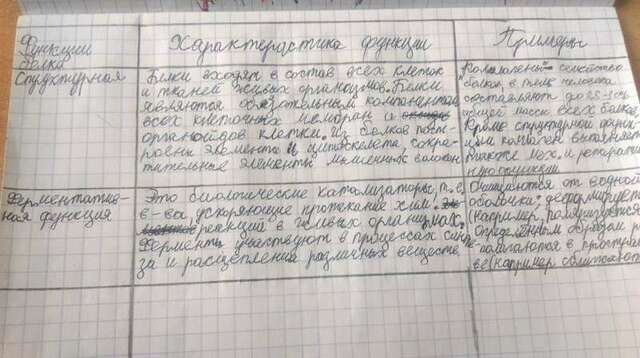 Функции
белка
Характеристика функции
Примеры
Структурная
Белки входят в состав всех клеток
и тканей живых организмов. Белки
являются обязательным компонентом
всех клеточных мембран и
органоидов клетки. Из белков пост-
роены элементы цитоскелета, сокра-
тительные элементы мышечных волокон
семейство
белков, в теле человека
составляют до 25-
общей массы всех белков.
Кроме структурной функ
ции коллаген выполняет
также мех. и
функции
Ферментатив-
ная функция
Это биологические катализаторы, т.е.
в-ва, ускоряющие протекание хим.
реакций в живых организмах.
Ферменты участвуют в процессах синте
за и расщепления различных веществ
Очищаются от водной
оболочки; деформируется
(например,
определённым образом р
полагаются в пространст
ве (например